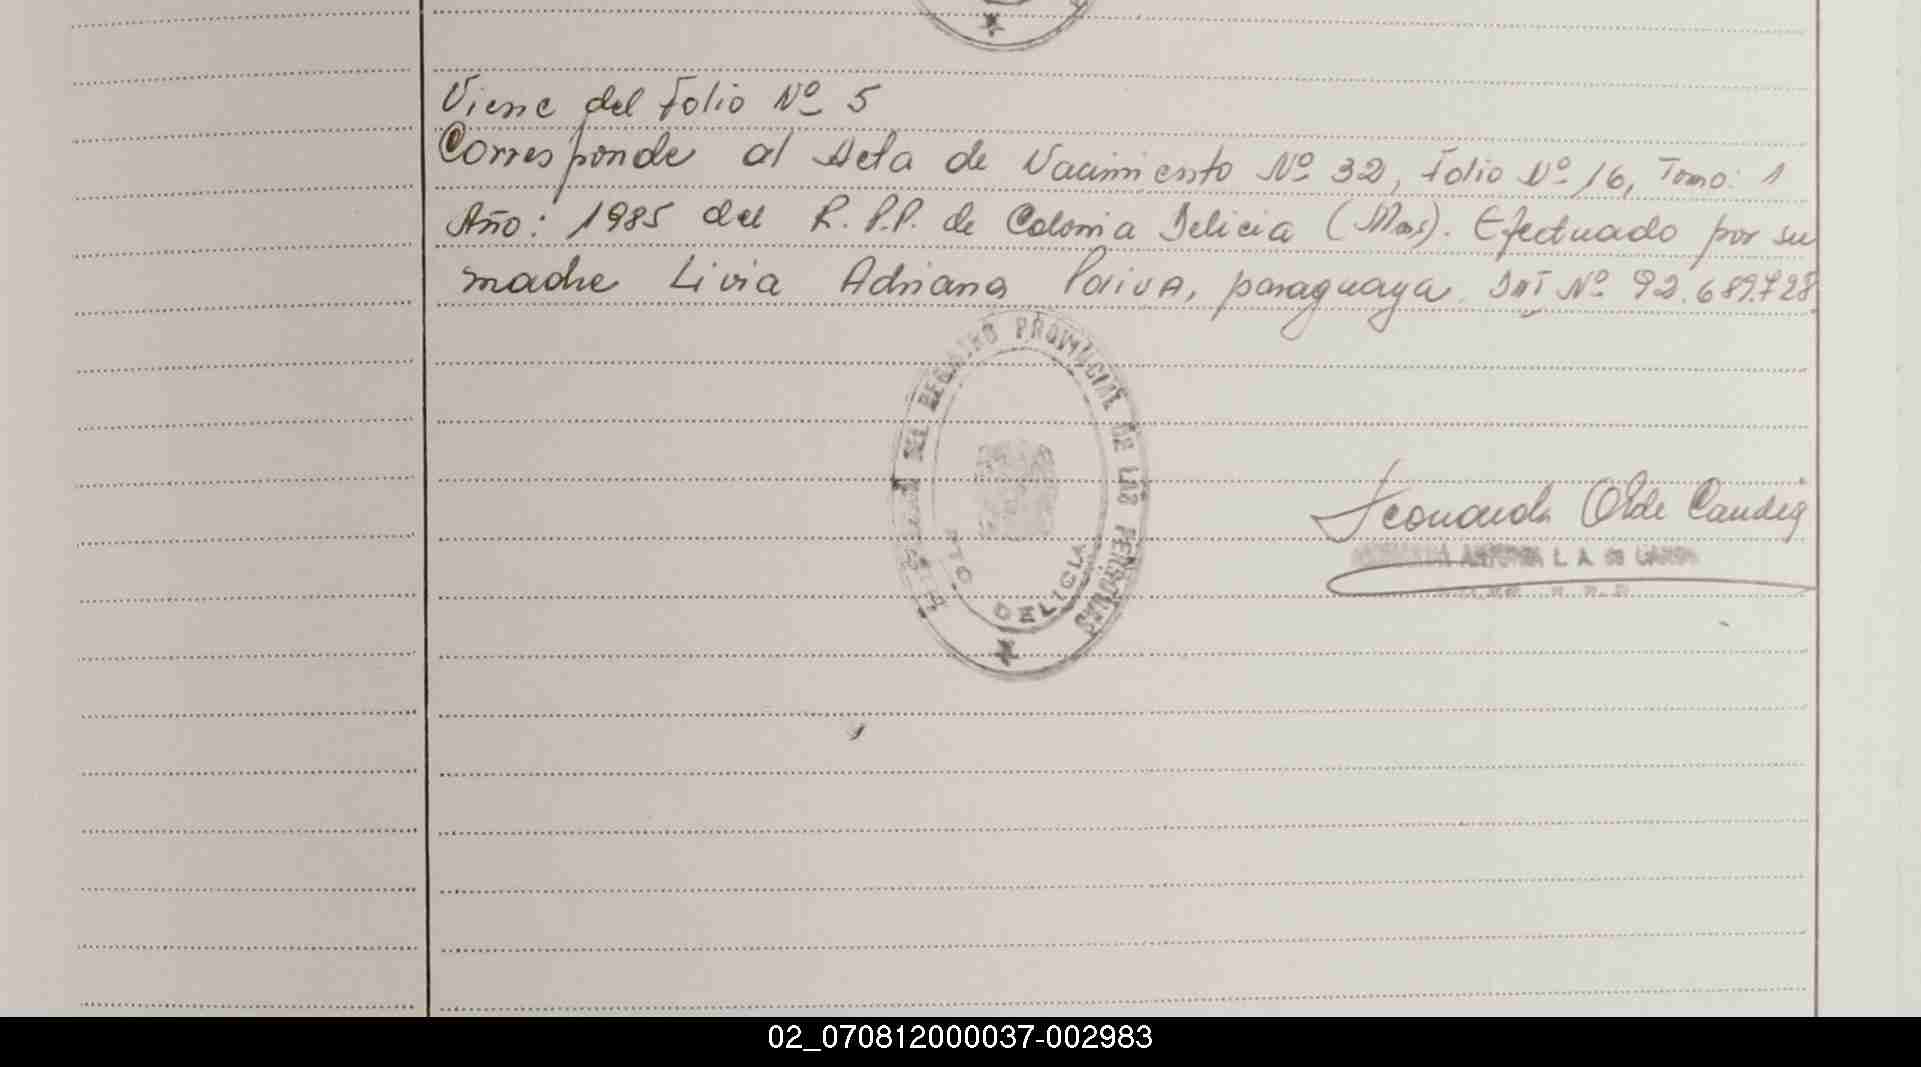 Viene del Folio Nº 5
Corresponde al Acta de Nacimiento Nº 32, Folio Nº 16, Tomo: 1
Año: 1985 del R.P.P. de Colonia Delicia (Mnes). Efectuado por su
madre Livia Adriana Paiva, paraguaya. DNI Nº 92.689.728
DEL REGISTRO PROVINCIAL DE LAS PERSONAS
PTO. DELICIA
L. A. DE
02_070812000037-002983